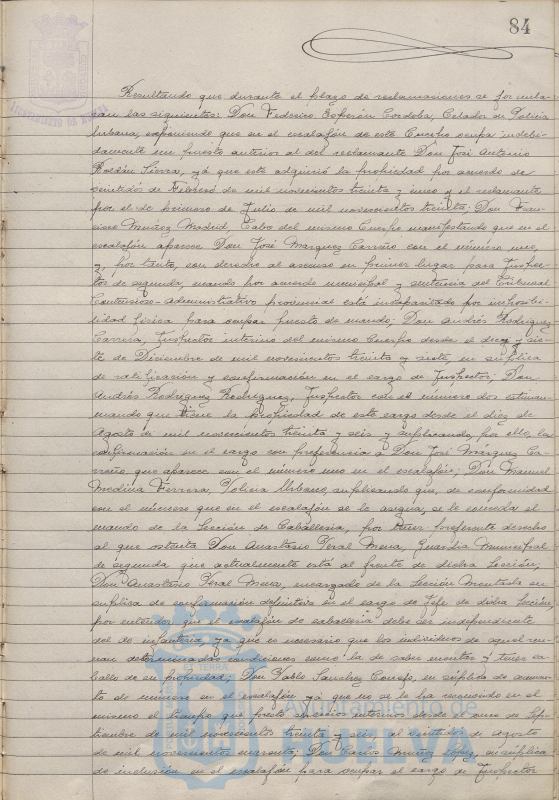 84
Resultando que durante el plazo de reclamaciones se formula-
ran las siguientes: Don Federico Cordoba, Celador de Policia
Urbana, exponiendo que en el escalafón de este Cuerpo ocupa indebi-
damente un puesto anterior al del reclamante Don José Antonio
Roldán Sierra, ya que este adquirió la propiedad por acuerdo de
veintidós de Febrero de mil novecientos treinta y cinco y el reclamante
por el de primero de Julio de mil novecientos treinta; Don Fran-
cisco Muñoz Madrid, Cabo del mismo Cuerpo manifestando que en el
escalafón aparece Don José Márquez Carreño con el número uno,
y, por tanto, con derecho al ascenso en primer lugar para Inspec-
tor de segunda, cuando por acuerdo municipal y sentencia del Tribunal
Contencioso-administrativo provincial está incapacitado por imposibi-
lidad física para ocupar puesto de mando; Don Andrés Rodriguez
Carrera, Inspector interino del mismo Cuerpo desde el diez y sie-
te de Diciembre de mil novecientos treinta y siete, en súplica
de ratificación y confirmación en el cargo de Inspector; Don
Andrés Rodriguez Rodriguez, Inspector con el número dos estiman-
mando que tiene la propiedad de este cargo desde el diez de
Agosto de mil novecientos treinta y seis y suplicando, por ello, la
confirmación en el cargo con preferencia a Don José Márquez Ca-
rreño, que aparece con el número uno en el escalafón; Don Manuel
Medina Ferrera, Policia Urbano, suplicando que, de conformidad
con el número que en el escalafón se le asigna, se le conceda el
mando de la Sección de Caballeria, por tener preferente derecho
al que ostenta Don Anastasio Peral Mena, Guardia Municipal
de segunda que actualmente está al frente de dicha Sección;
Don Anastasio Peral Mena, encargado de la Sección Montada en
suplica de confirmación definitiva en el cargo de Jefe de dicha Sección,
por entender que el escalafón de caballeria debe ser independiente
del de infanteria, ya que es necesario que los individuos de aquel reu-
nan determinadas condiciones como la de saber montar y tener ca-
ballo de su propiedad; Don Pablo Sanchez Conejo, en súplica de aumen-
to de número en el escalafón ya que no se le ha reconocido en el
mismo el tiempo que prestó servicios interinos desde el once de Sep-
tiembre de mil novecientos treinta y seis al veintidos de agosto
de mil novecientos cuarenta; Don Carlos Muñoz López, en súplica
de inclusión en el escalafón para ocupar el cargo de Inspector
Ayuntamiento de
HUELVA